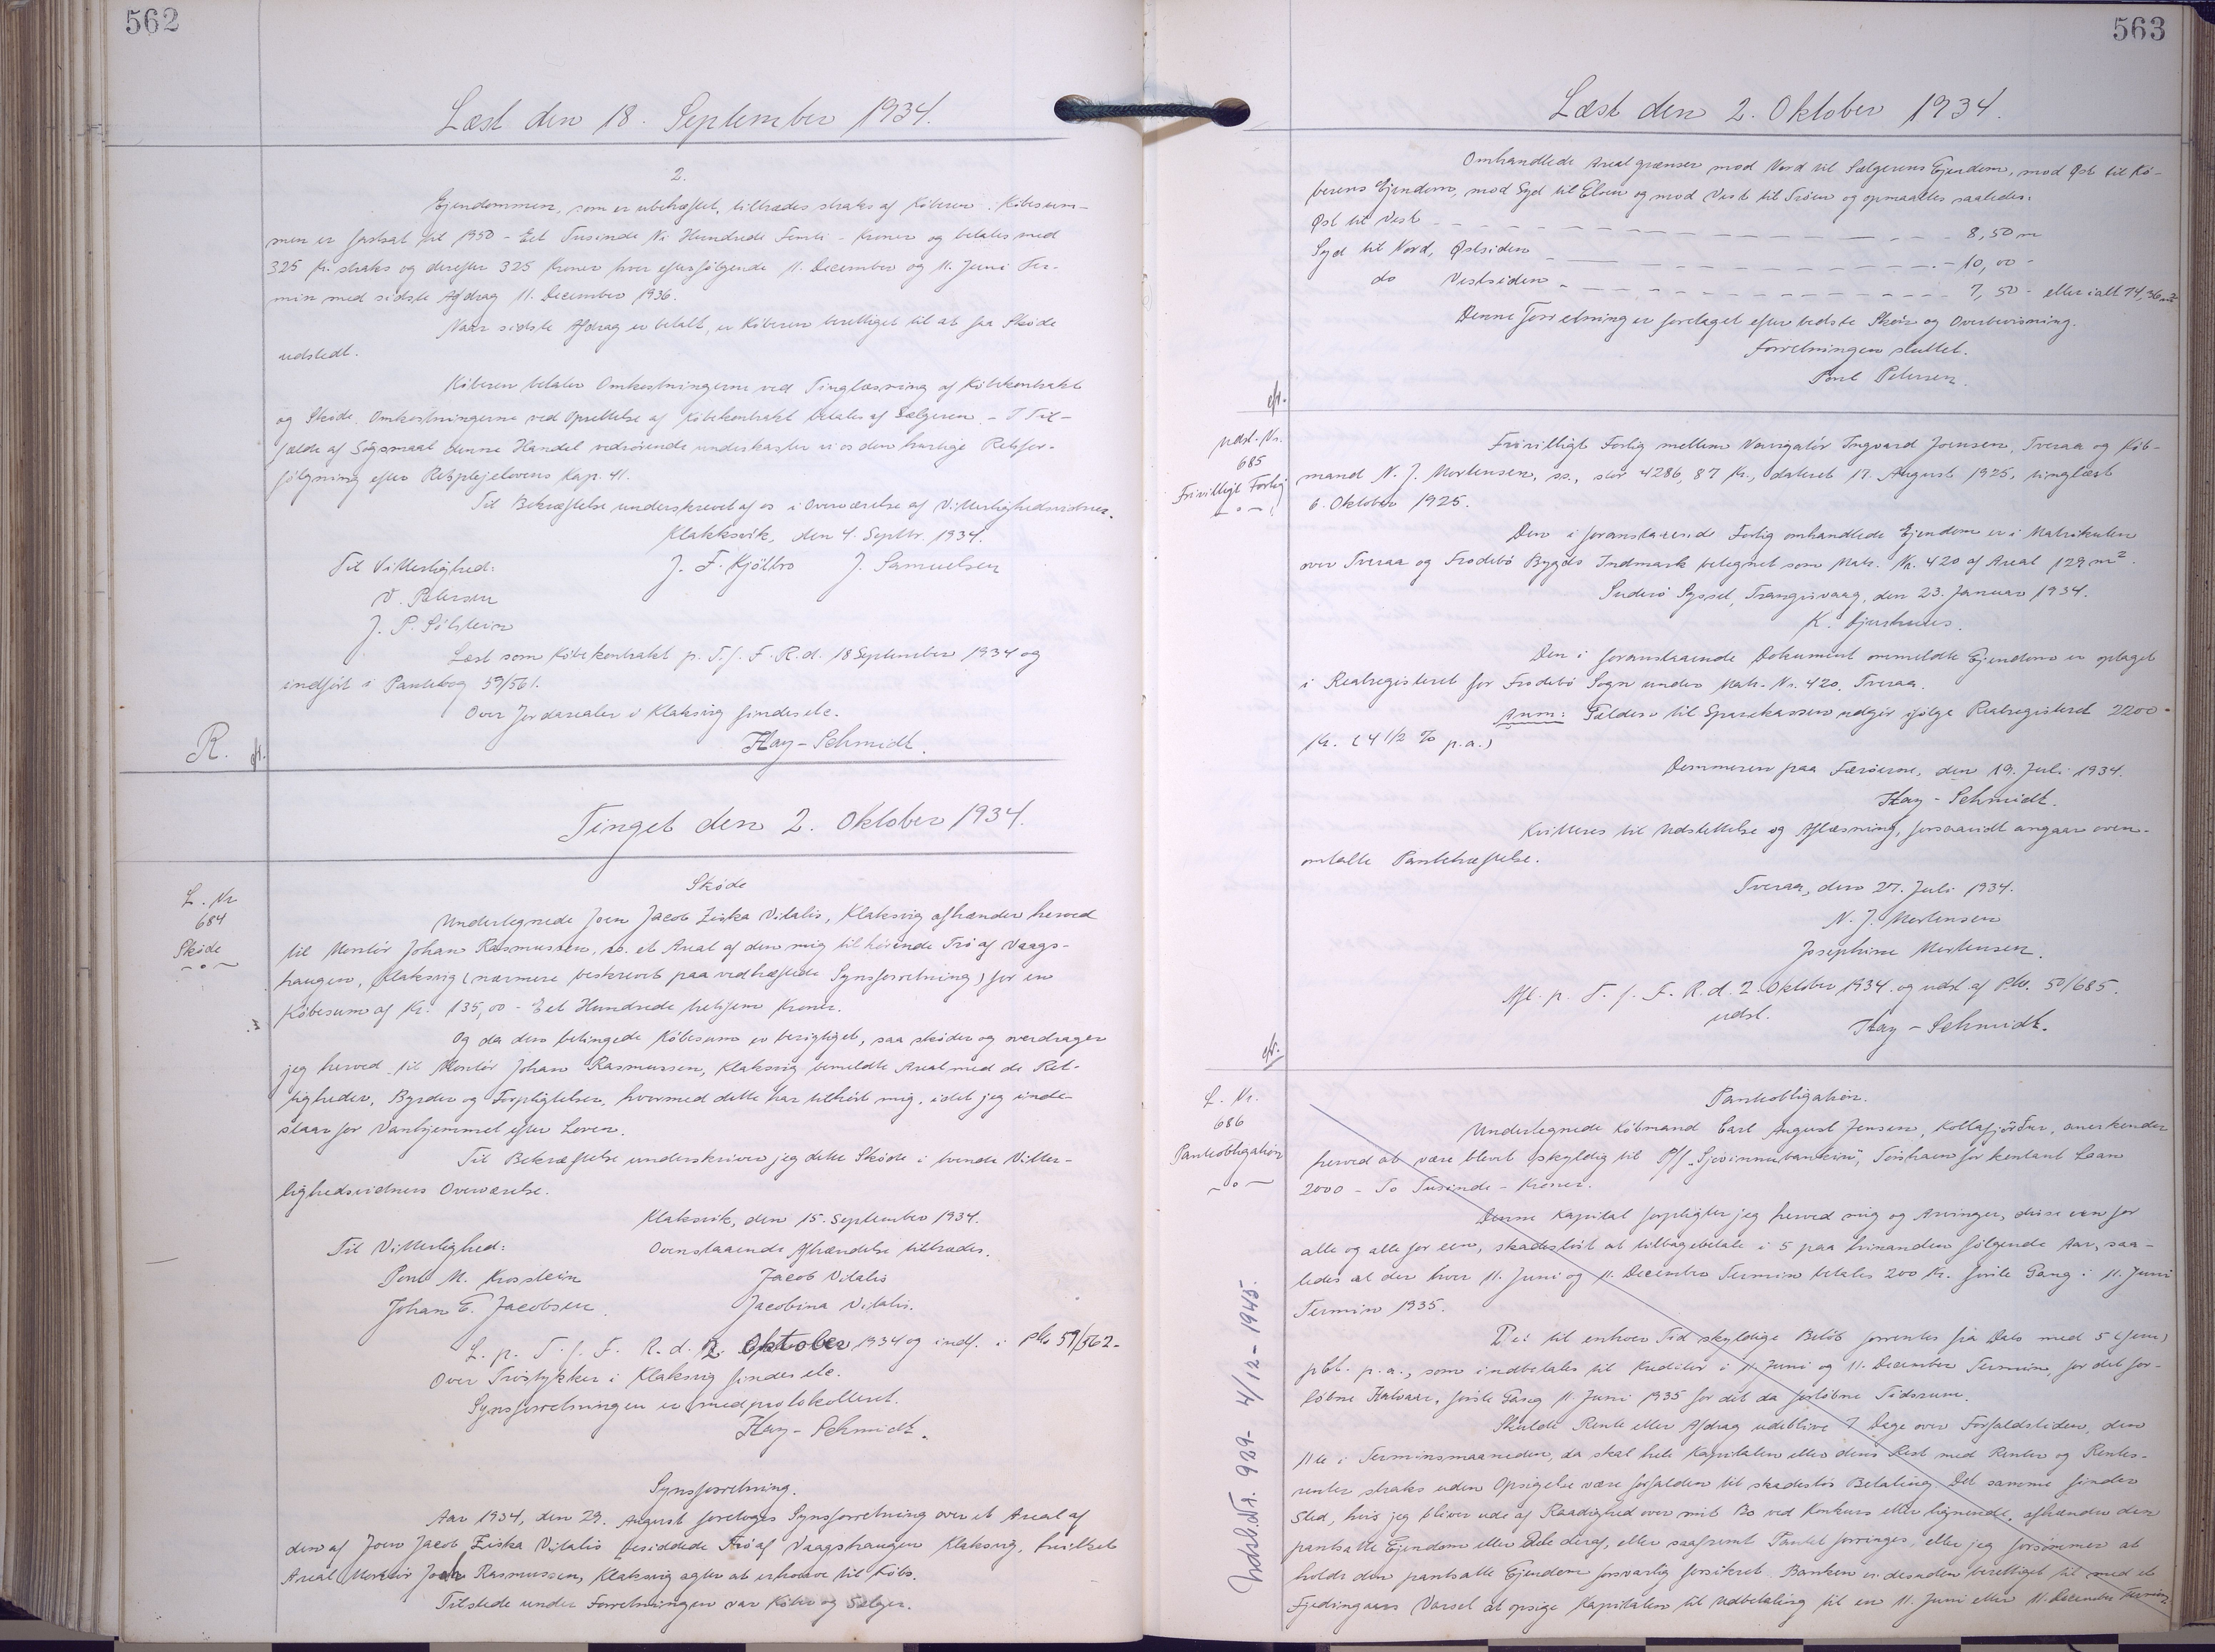 562
Læst den 18. September 1934.
2.
Ejendommen, som er ubehæftet, tiltrædes straks af Køberen. Købesum-
men er fastsat til 1950 - Eet Tusinde Ni Hundrede Femti - Kroner og betales med
325 Kr. straks og derefter 325 Kroner hver efterfølgende 11. December og 11. Juni Ter-
min med sidste Afdrag 11. December 1936.
Naar sidste Afdrag er betalt, er Køberen berettiget til at faa Skøde
udstedt.
Køberen betaler Omkostningerne ved Tinglæsning af Købekontrakt
og Skøde. Omkostningerne ved Oprettelse af Købekontrakt betales af Sælgeren. - I Til-
fælde af Søgsmaal denne Handel vedrørende underkaster vi os den hurtige Retsfor-
følgning efter Retsplejelovens Kap. 41.
Til Bekræftelse underskrevet af os i Overværelse af Vitterlighedsvidner.
Klakksvik, den 4. Septbr. 1934.
Til Vitterlighed: J. F. Kjölbro J. Samuelsen
V. Petersen
J. P. Sólstein
Læst som Købekontrakt p. T. f. F. R. d. 18 September 1934 og
indført i Pantebog 59/561.
Over Jordarealer i Klaksvig findes etc.
Hay-Schmidt.
R. cfr.
Tinget den 2. Oktober 1934.
L. Nr
684
Skøde
Skøde
Undertegnede Joen Jacob Ziska Vitalis, Klaksvig afhænder herved
til Montør Johan Rasmussen, ss. et Areal af den mig tilhørende Trø af Vaags-
haugen, Klaksvig (nærmere beskrevet paa vedhæftede Synsforretning) for en
Købesum af Kr. 135,00 - Eet Hundrede tretifem Kroner.
Og da den betingede Købesum er berigtiget, saa skøder og overdrager
jeg herved til Montör Johan Rasmussen, Klaksvig bemeldte Areal med de Ret-
tigheder, Byrder og Forpligtelser, hvormed dette har tilhørt mig, idet jeg inde-
staar for Vanhjemmel efter Loven.
Til Bekræftelse underskriver jeg dette Skøde i tvende Vitter-
lighedsvidners Overværelse.
Klaksvik, den 15. September 1934.
Til Vitterlighed: Ovenstaaende Afhændelse tiltrædes.
Poul M. Krosstein Jacob Vitalis
Johan E. Jacobsen. Jacobina Vitalis.
L. p. T. f. F. R. d. 2. Oktober 1934 og indf. i Pb. 59/562.
Over Trøstykker i Klaksvig findes etc.
Synsforretningen er medprotokolleret.
Hay-Schmidt.
Synsforretning.
Aar 1934, den 29. August foretoges Synsforretning over et Areal af
den af Joen Jacob Ziska Vitalis besiddede Trø af Vaagshaugen Klaksvig, hvilket
Areal Montör Joh Rasmussen, Klaksvig agter at erhverve til Købs.
Tilstede under Forretningen var Køber og Sælger.
563
Læst den 2. Oktober 1934.
Omhandlede Areal grænser mod Nord til Sælgerens Ejendom, mod Øst til Kø-
berens Ejendom, mod Syd til Elven og mod Vest til Trøen og opmaaltes saaledes:
Øst til Vest 8,50 m
Syd til Nord, Østsiden 10,00 -
do Vestsiden 7,50 - eller ialt 74,36 m2
Denne Forretning er foretaget efter bedste Skøn og Overbevisning.
Forretningen sluttet.
Poul Petersen.
cfr.
Udsl. Nr.
685
Frivilligt Forlig
Frivilligt Forlig mellem Navigatör Ingvard Joensen, Tveraa og Køb-
mand N. J. Mortensen, ss., stor 4286,87 Kr., dateret 17. August 1925, tinglæst
6. Oktober 1925.
Den i foranstaaende Forlig omhandlede Ejendom er i Matrikulen
over Tveraa og Frodebö Bygds Indmark betegnet som Matr. Nr. 420 af Areal 129 m2.
Suderö Syssel, Trangisvaag, den 23. Januar 1934.
K. Djurhuus.
Den i foranstaaende Dokument ommeldte Ejendom er optaget
i Realregisteret for Frodebö Sogn under Matr. Nr. 420, Tveraa.
Anm: Gælden til Sparekassen udgør ifølge Realregisteret 2200 -
Kr. (4 1/2 % p.a.)
Dommeren paa Færöerne, den 19. Juli 1934.
Hay-Schmidt.
Kvitteres til Udslettelse og Aflæsning, forsaavidt angaar oven-
omtalte Pantehæftelse.
Tveraa, den 27. Juli 1934.
N. J. Mortensen
Josephine Mortensen.
Afl. p. T. f. F. R. d. 2. Oktober 1934 og udsl. af Pb. 50/685.
udsl. Hay-Schmidt.
cfr.
L. Nr.
686
Panteobligation
Panteobligation.
Undertegnede Købmand Carl August Jensen, Kollafjörður, anerkender
herved at være blevet skyldig til P/f "Sjóvinnubankin", Tórshavn for kontant Laan
2000 - To Tusinde - Kroner.
Denne Kapital forpligter jeg herved mig og Arvinger, disse een for
alle og alle for een, skadesløst at tilbagebetale i 5 paa hinanden følgende Aar, saa-
ledes at der hver 11. Juni og 11. December Termin betales 200 Kr. første Gang i 11. Juni
Termin 1935.
Det til enhver Tid skyldige Beløb forrentes fra Dato med 5 (fem)
pCt. p.a., som indbetales til Kreditor i 11 Juni og 11. December Termin, for det for-
løbne Halvaar, første Gang 11. Juni 1935 for det da forløbne Tidsrum.
Skulde Rente eller Afdrag udeblive 7 Dage over Forfaldstiden, den
11te i Terminsmaaneden, da skal hele Kapitalen eller dens Rest med Renter og Rentes-
renter straks uden Opsigelse være forfalden til skadesløs Betaling. Det samme finder
Sted, hvis jeg bliver ude af Raadighed over mit Bo ved Konkurs eller lignende, afhænder den
pantsatte Ejendom eller Dele deraf, eller saafremt Pantet forringes, eller jeg forsømmer at
holde den pantsatte Ejendom forsvarlig forsikret. Banken er desuden berettiget til med et
Fjerdingaars Varsel at opsige Kapitalen til Udbetaling til en 11. Juni eller 11. December Termin.
Indsl. Nr. 929 - 4/12 - 1945.